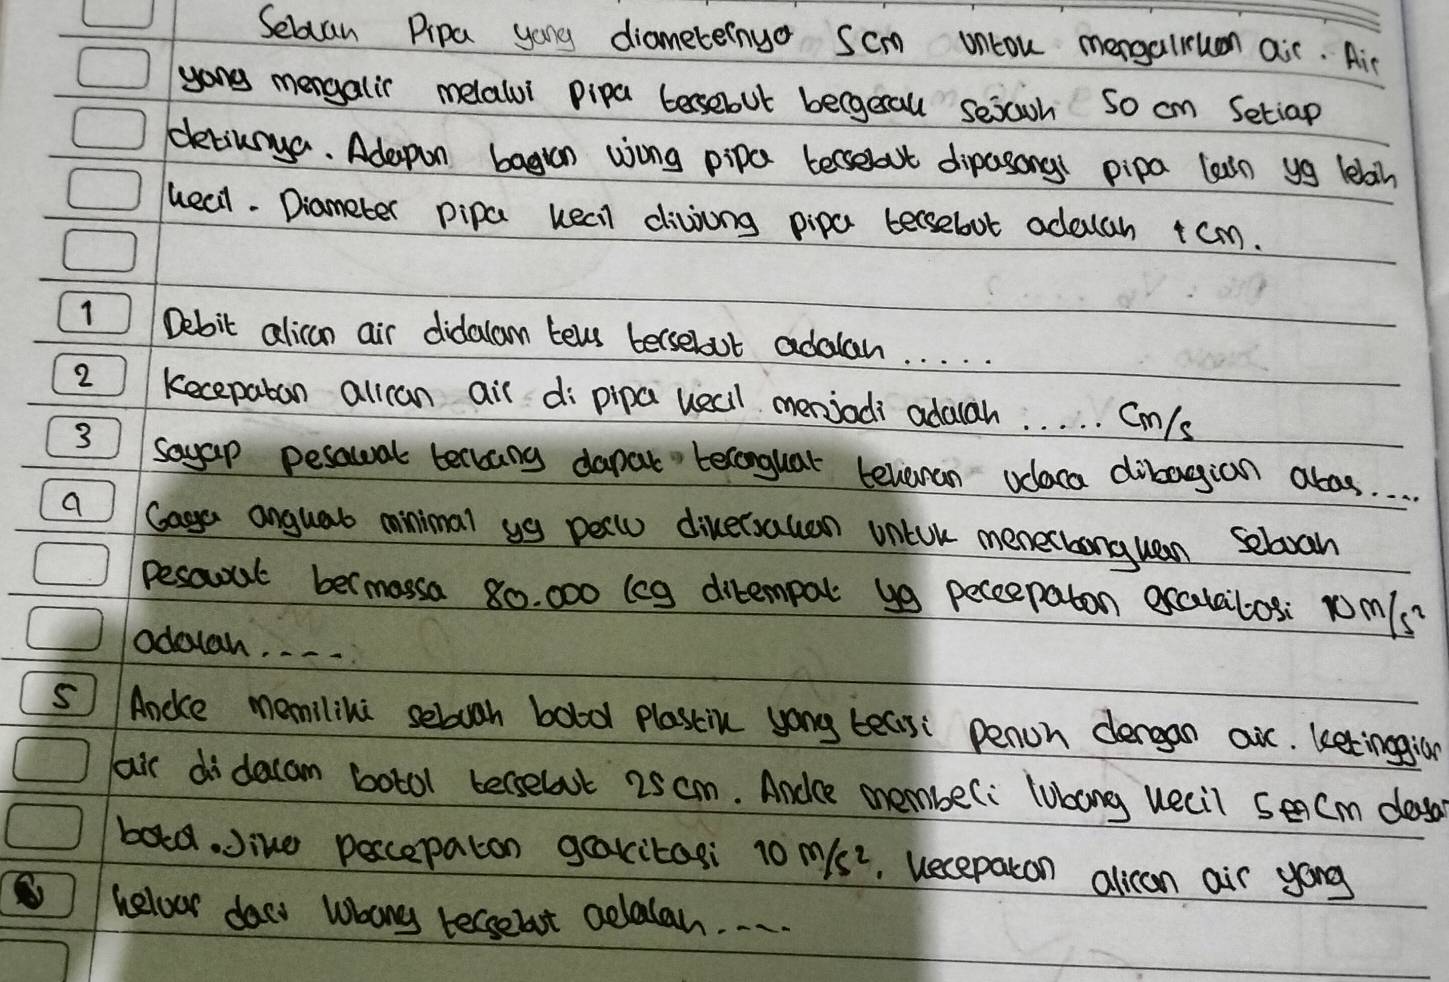 Sebuah Pipa yang diameternya 5cm untuk mengalirkan air. Air
yang mengalir melalui pipa tersebut bergerak sejauh 50 cm Setiap
detiknya. Adapun bagian ujung pipa tersebut dipasangi pipa lain yg lebih
kecil. Diameter pipa kecil diujung pipa tersebut adalah 1 cm.
1 Debit aliran air didalam teks tersebut adalah .....
2 Kecepatan aliran air di pipa kecil menjadi adalah ..... cm/s
3 Sayap pesawat terbang dapat terangkat tekanan udara dibagian atas....
4 Gaya angkat minimal yg perlu dikerjakan untuk menerbangkan Sebuah
pesawat bermassa 80.000 kg ditempat yg percepatan gravitasi 10 m/s²
adalah.....
5 Andre memiliki sebuah botol plastik yang terisi penuh dengan air. ketinggian
air di dalam botol tersebut 25 cm. Andre memberi lubang kecil 5 cm dasar
botol. Jika percepatan gravitasi 10 m/s², kecepatan aliran air yang
keluar dari lubang tersebut adalah.....